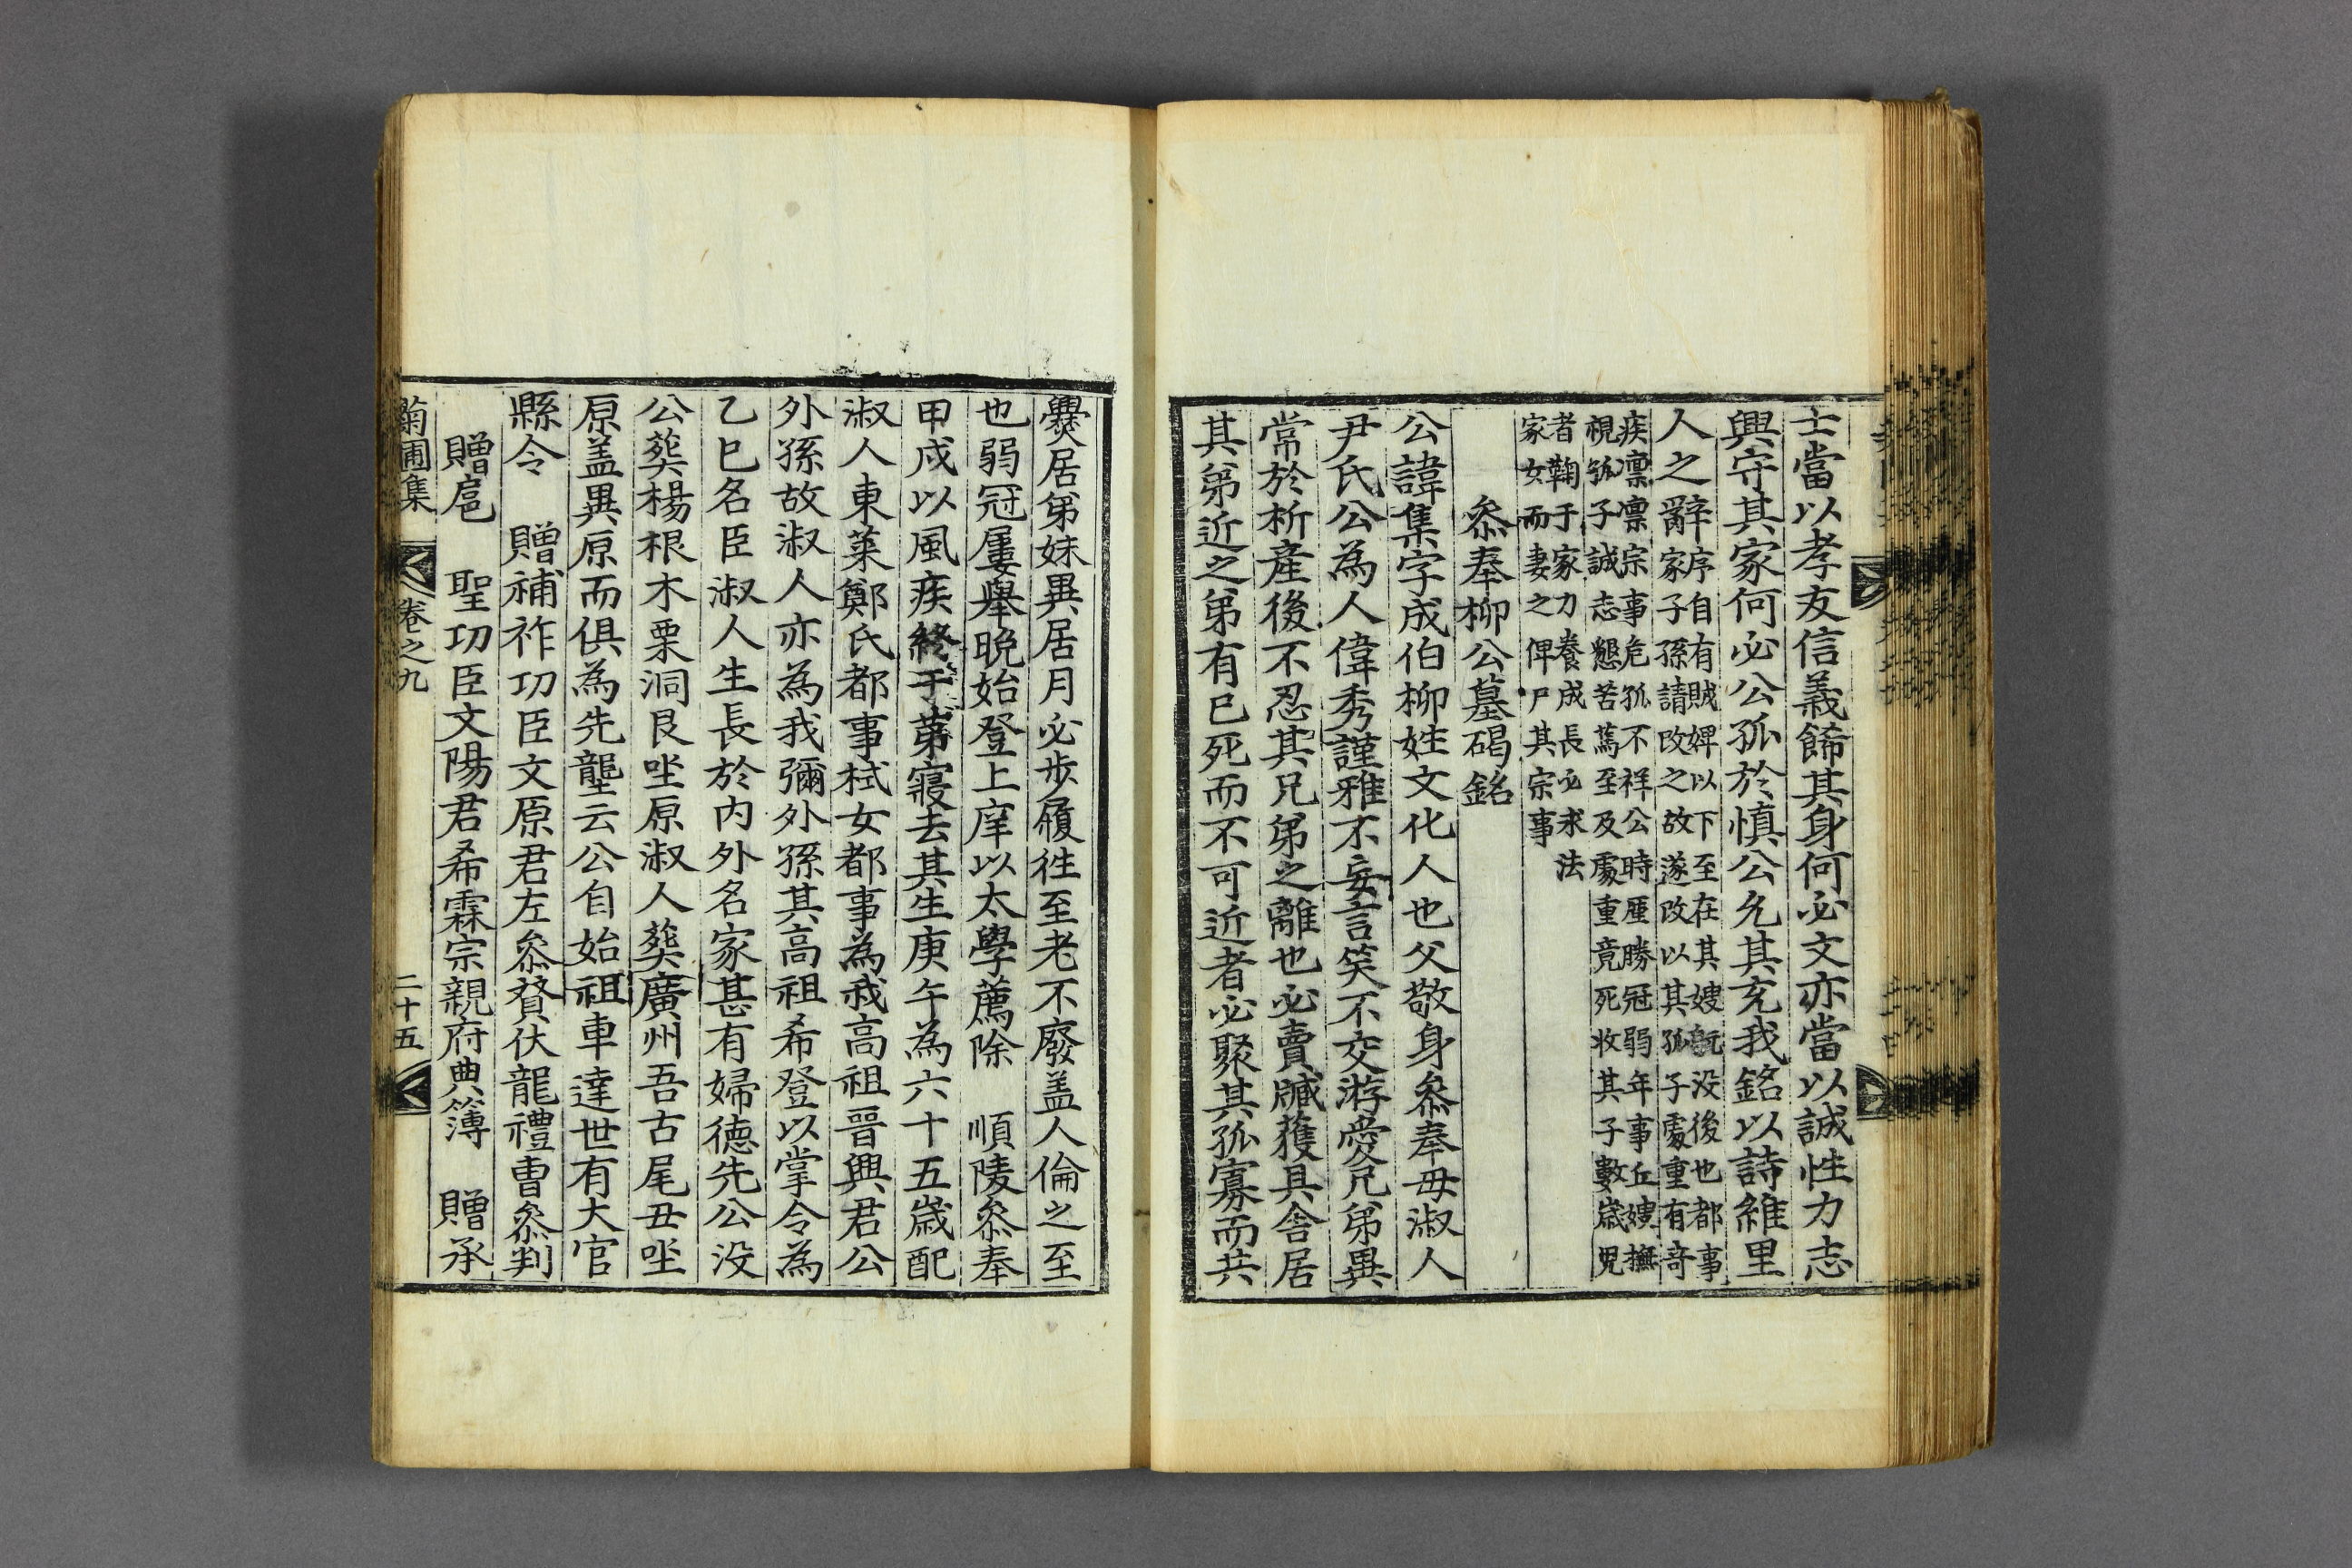 士當以孝友信義飾其身何必文亦當以誠性力志
興守其家何必公孤於慎公允其充我銘以詩維里
人之辭序自有賊婢以下至在其嫂既没後也都事
家子孫請改之故遂改以其孤子處重有奇
疾凜凜宗事危孤不祥公時厪勝冠弱年事丘嫂撫
視孤子誠志懇苦萬至及處重竟死收其子數歲兒
者鞠于家力養成長必求法
家女而妻之俾尸其宗事
叅奉柳公墓碣銘
公諱集字成伯柳姓文化人也父敬身叅奉母淑人
尹氏公為人偉秀謹雅不妄言笑不交游愛兄弟異
常於析産後不忍其兄弟之離也必賣臧獲具舍居
其弟近之弟有已死而不可近者必聚其孤寡而共
爨居弟妹異居月必步履徃至老不廢盖人倫之至
也弱冠屢舉晩始登上庠以太學薦除 順陵叅奉
甲戌以風疾終于第寢去其生庚午為六十五歲配
淑人東萊鄭氏都事栻女都事為我高祖晉興君公
外孫故淑人亦為我彌外孫其高祖希登以掌令為
乙巳名臣淑人生長於内外名家甚有婦德先公没
公葬楊根木栗洞艮坐原淑人葬廣州吾古尾丑坐
原盖異原而俱為先壟云公自始祖車達世有大官
縣令 贈補祚功臣文原君左叅贊伏龍禮曹叅判
贈扈 聖功臣文陽君希霖宗親府典簿 贈承
菊圃集 卷之九 二十五